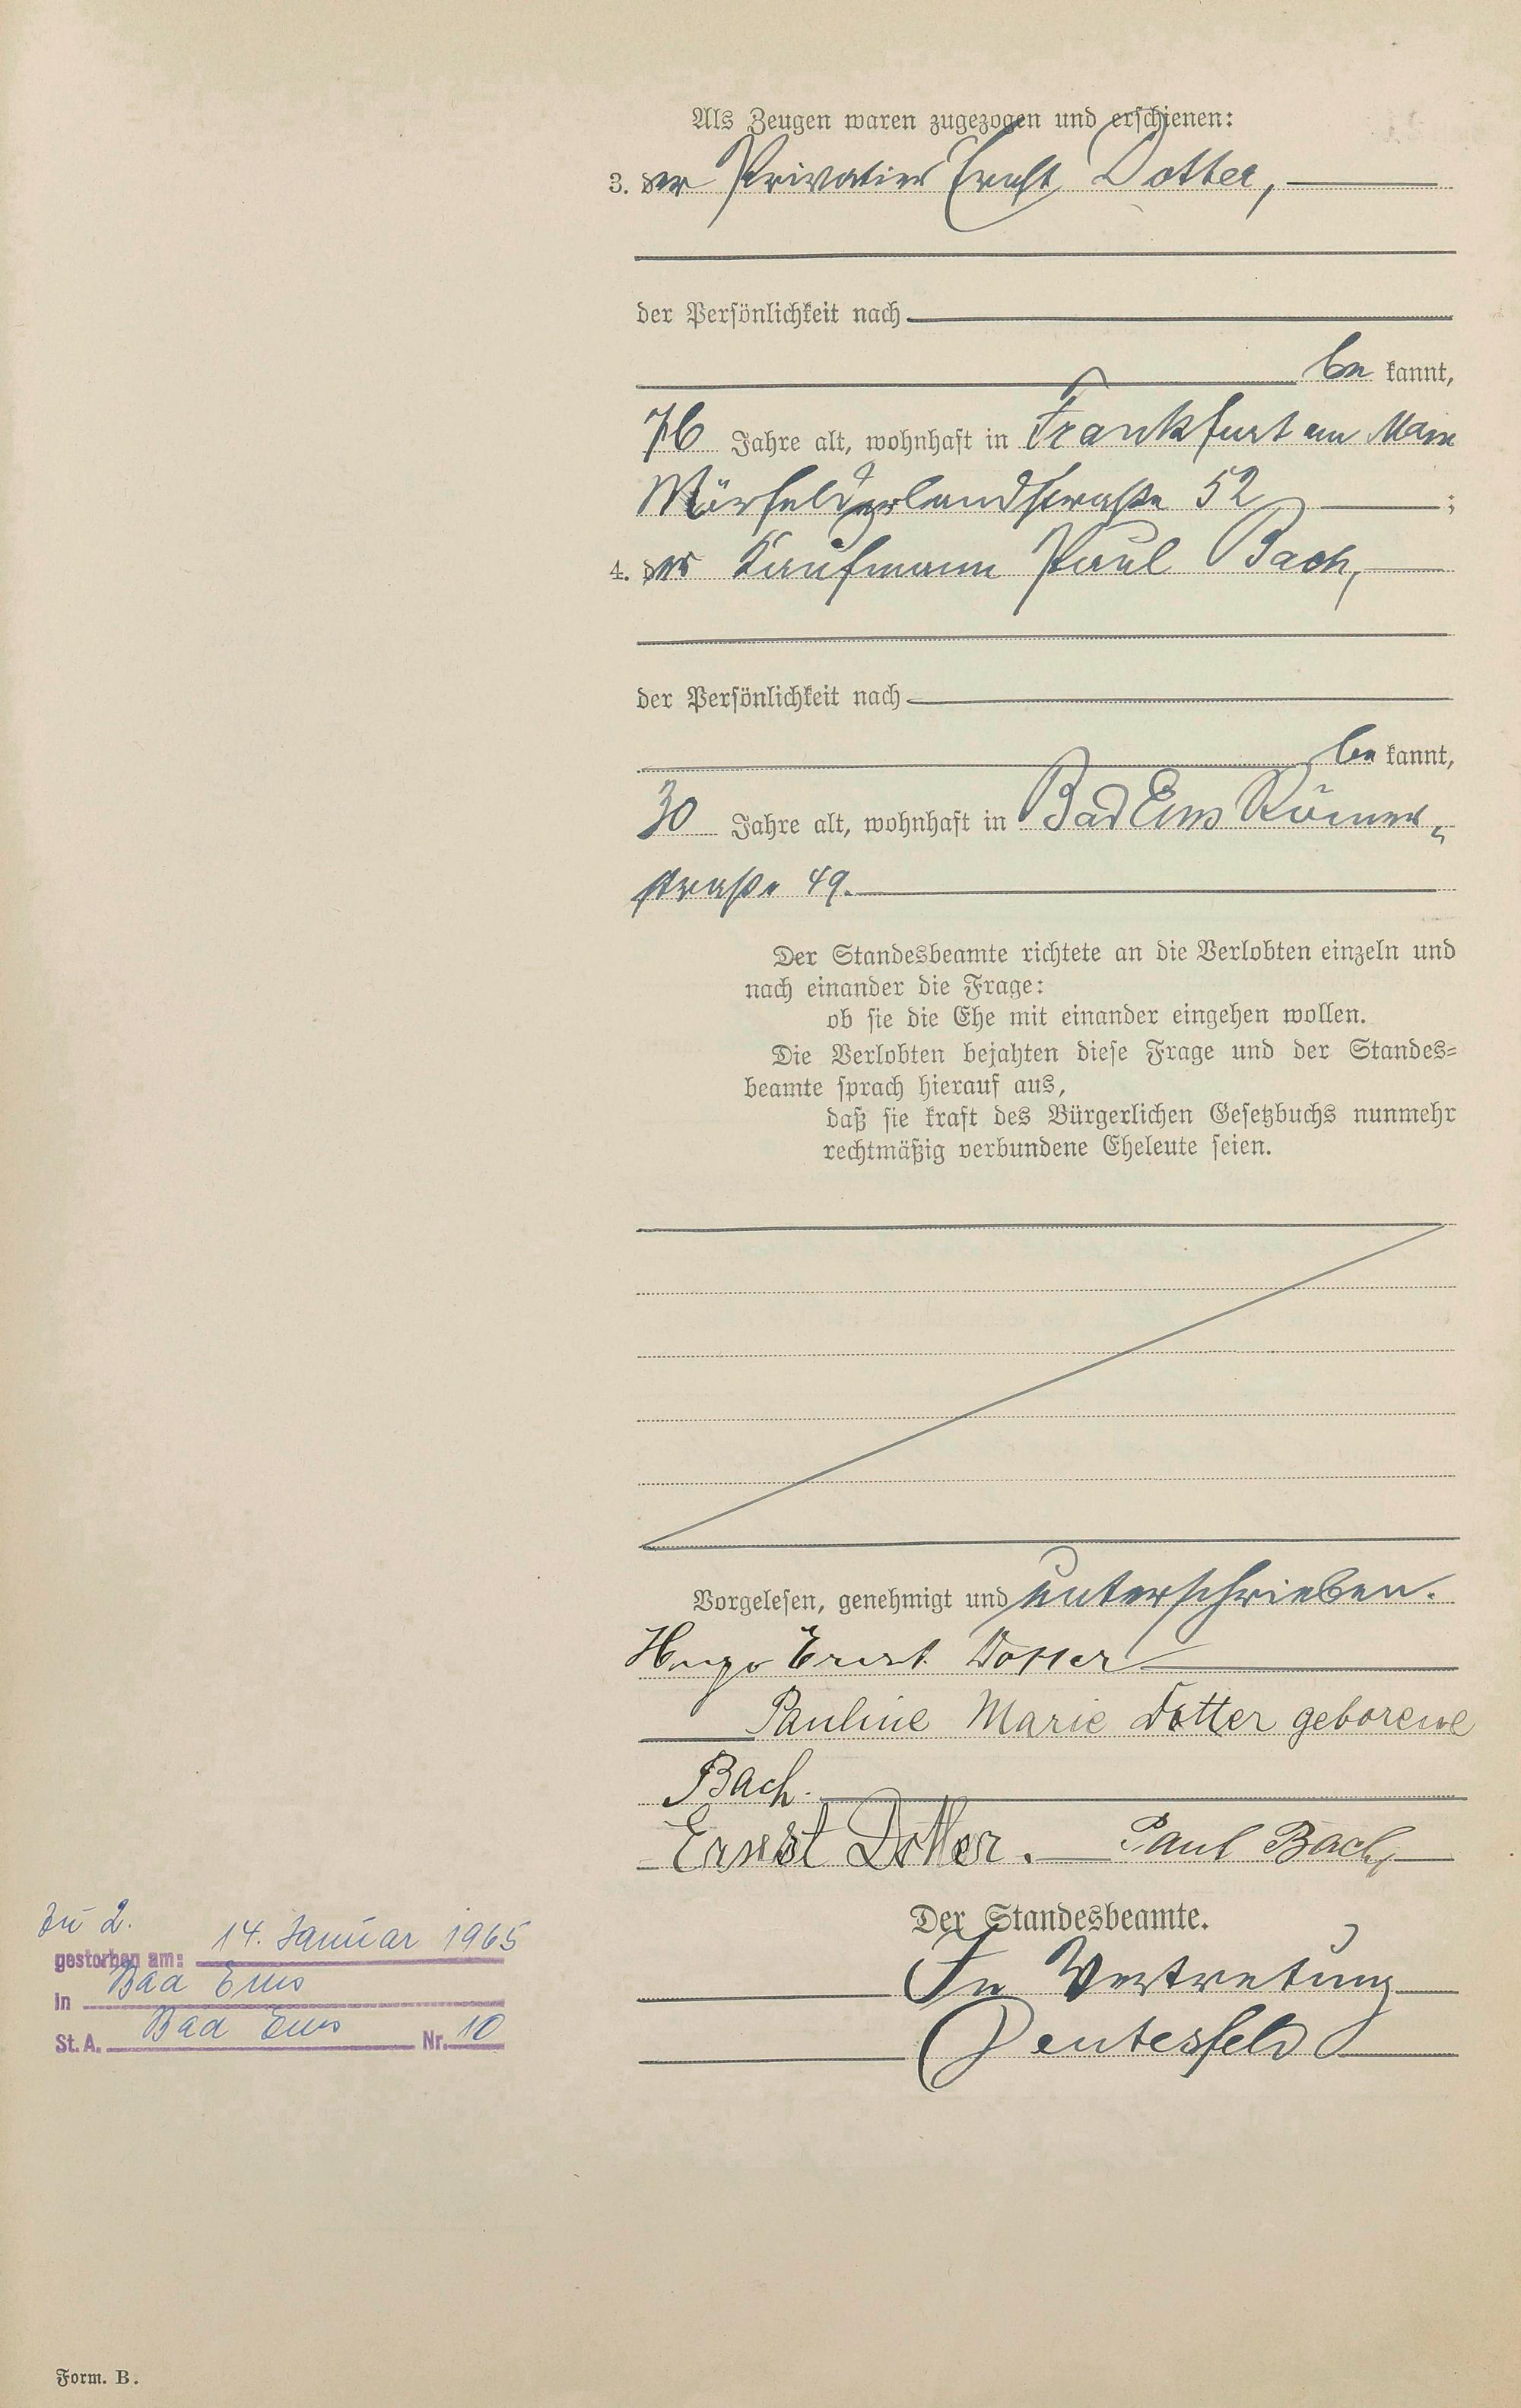 Als Zeugen waren zugezogen und erschienen:
3. der Privatier Ernst Dotter,
der Persönlichkeit nach
be kannt,
76 Jahre alt, wohnhaft in Frankfurt am Main
Mörfelderlandstraße 52 ;
4. der Kaufmann Paul Bach,
der Persönlichkeit nach
be kannt,
30 Jahre alt, wohnhaft in Bad Ems Römer-
straße 49.
Der Standesbeamte richtete an die Verlobten einzeln und
nach einander die Frage:
ob sie die Ehe mit einander eingehen wollen.
Die Verlobten bejahten diese Frage und der Standes-
beamte sprach hierauf aus,
daß sie kraft des Bürgerlichen Gesetzbuchs nunmehr
rechtmäßig verbundene Eheleute seien.
Vorgelesen, genehmigt und unterschrieben.
Hugo Ernst Dotter
Pauline Marie Dotter geborene
Bach.
Ernst Dotter. Paul Bach
Der Standesbeamte.
In Vertretung
Zu 2.
gestorben am: 14. Januar 1965
in Bad Ems
St. A. Bad Ems Nr. 10
Form. B.